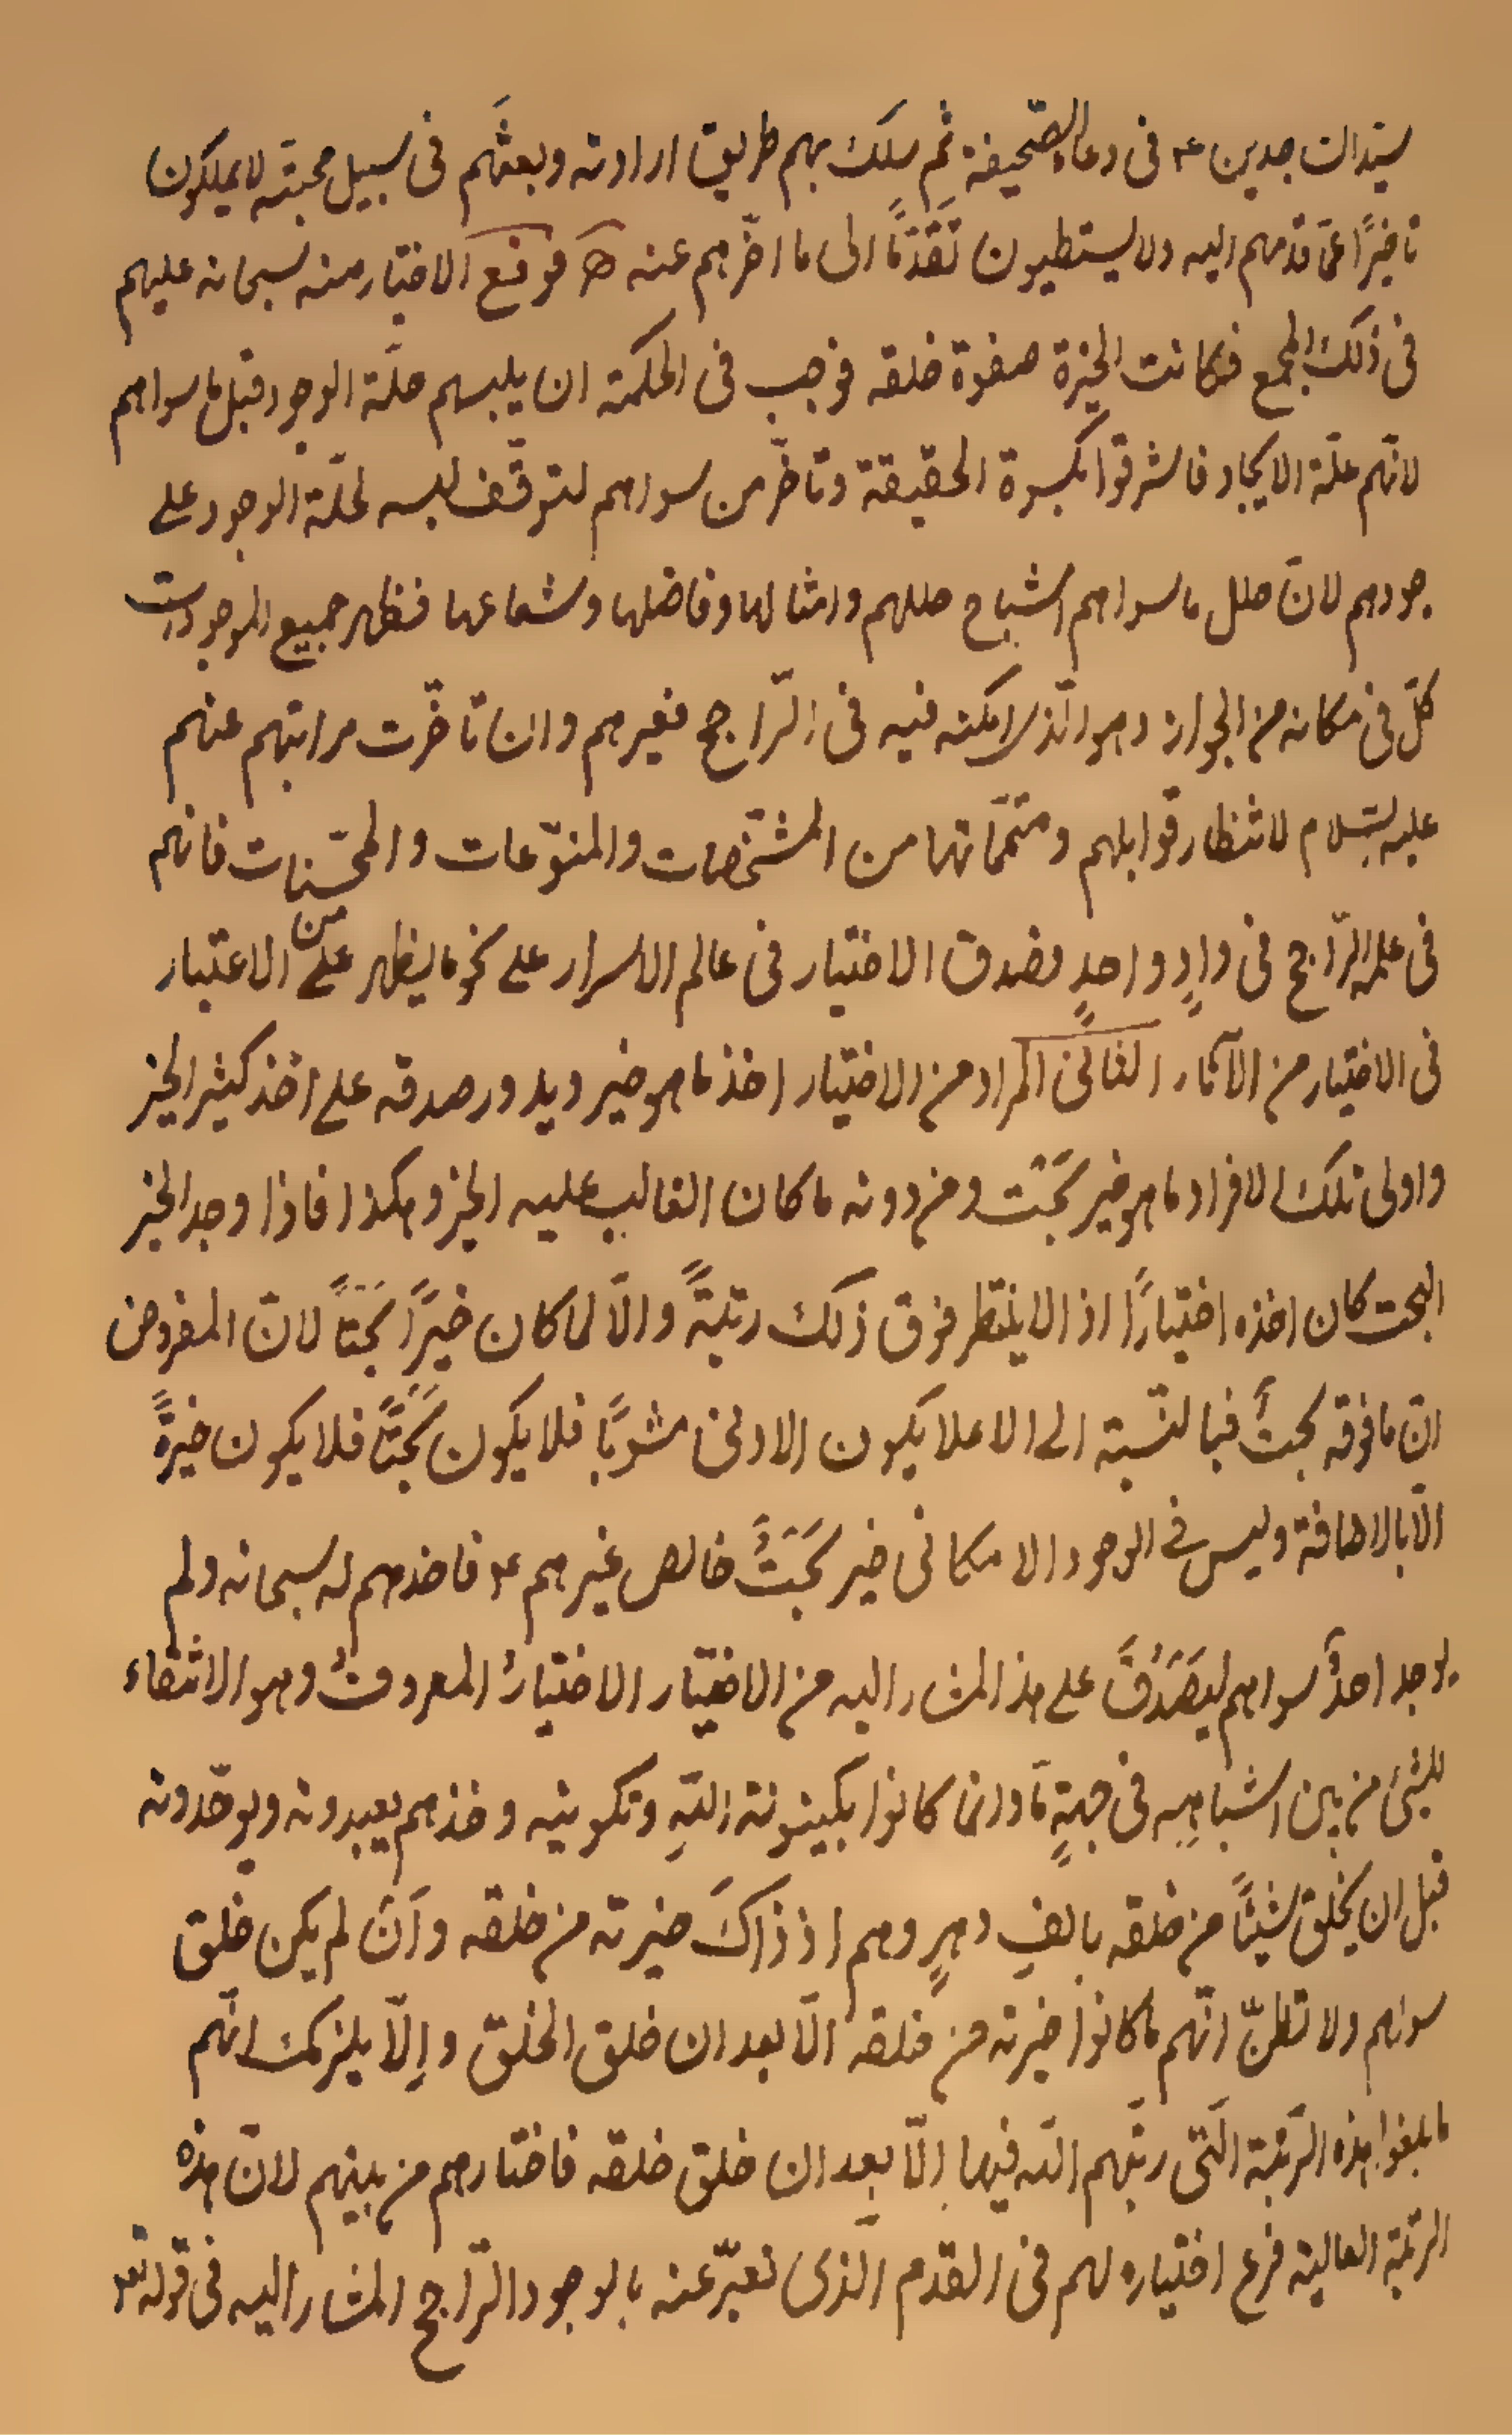 سيّد الساجدين ع في دعاء الصّحيفة ثم سلك بهم طريق ارادته وبعثَهم في سبيل محبّته لا يملكون
تاخيرًا عمّا قدّمهم اليه ولا يستطيعون تَقَدّمًا الى ما اخّرهم عنه فوقع الاختيار منه سبحانه عليهم
في ذلك الجمع فكانت الخيرة صفوة خلقه فوجب في الحكمة ان يلبسهم حلّة الوجود قبل ما سواهم
لانّهم علّة الايجاد فاشرقوا بكسوة الحقيقة وتاخّر من سواهم لتوقّف لبسه لحلّة الوجود على
وجودهم لانّ حلل ما سواهم اشباح حللهم وامثالها وفاضلها وشعاعها فظهر جميع الموجودات
كلّ في مكانه من الجواز وهو الّذي امكنه فيه في الرّاجح فغيرهم وان تاخّرت مراتبهم عنهم
عليه السّلام لانتظار قوابلهم ومتمّماتها من المشخّصات والمنوّعات والمحسّنات فانهم
في علمه الرّاجح في وادٍ واحدٍ فصدق الاختيار في عالم الاسرار على نحو ما يظهر على من الاعتبار
في الاختيار من الآثار الثاني المراد من الاختيار اخذ ما هو خير ويدور صدقه على اخذ كثير الخير
واولى تلك الافراد ما هو خير بَحْت ومن دونه ما كان الغالب عليه الخير وهكذا فاذا وجد الخير
البحت كان اخذه اختيارًا اذ لا ينتظر فوق ذلك رتبةً والّا لما كان خيرًا بَحتًا لانّ المفروض
انّ ما فوقه بحتٌ فبالنّسبة الى الاعلا يكون الادنى مشوبًا فلا يكون بَحْتًا فلا يكون خيرةً
الّا بالاضافة وليس في الوجود الامكاني خير بَحَتٌ خالص غيرهم ع فاخذهم له سبحانه ولم
يوجد احدٌ سواهم ليَصْدُقَ على هذا المشار اليه من الاختيار الاختيارُ المعروفُ وهو الانتقاء
للشئ من بين اشباهِه في جهةٍ مّا وانما كانوا بكينونة اللّهِ وتكوينه وخذهم يعبدونه ويوحّدونه
قبل ان يخلق شيئًا من خلقه بالفِ دهرٍ وهم اذ ذاكَ خيرته من خلقه وَانْ لم يكن خلق
سواهم ولا تظنّ انّهم ما كانوا خيرته من خلقه الّا بعد ان خلق الخلق وإلّا يلزمك انّهم
ما بلغوا هذه الرّتبة الّتي رتّبهم اللّه فيها إلّا بعد ان خلق خلقه فاختارهم من بينهم لانّ هذه
الرتبة العالية فرع اختياره لهم في القدم الّذي نعبّر عنه بالوجود الرّاجح المشار اليه في قوله تعو